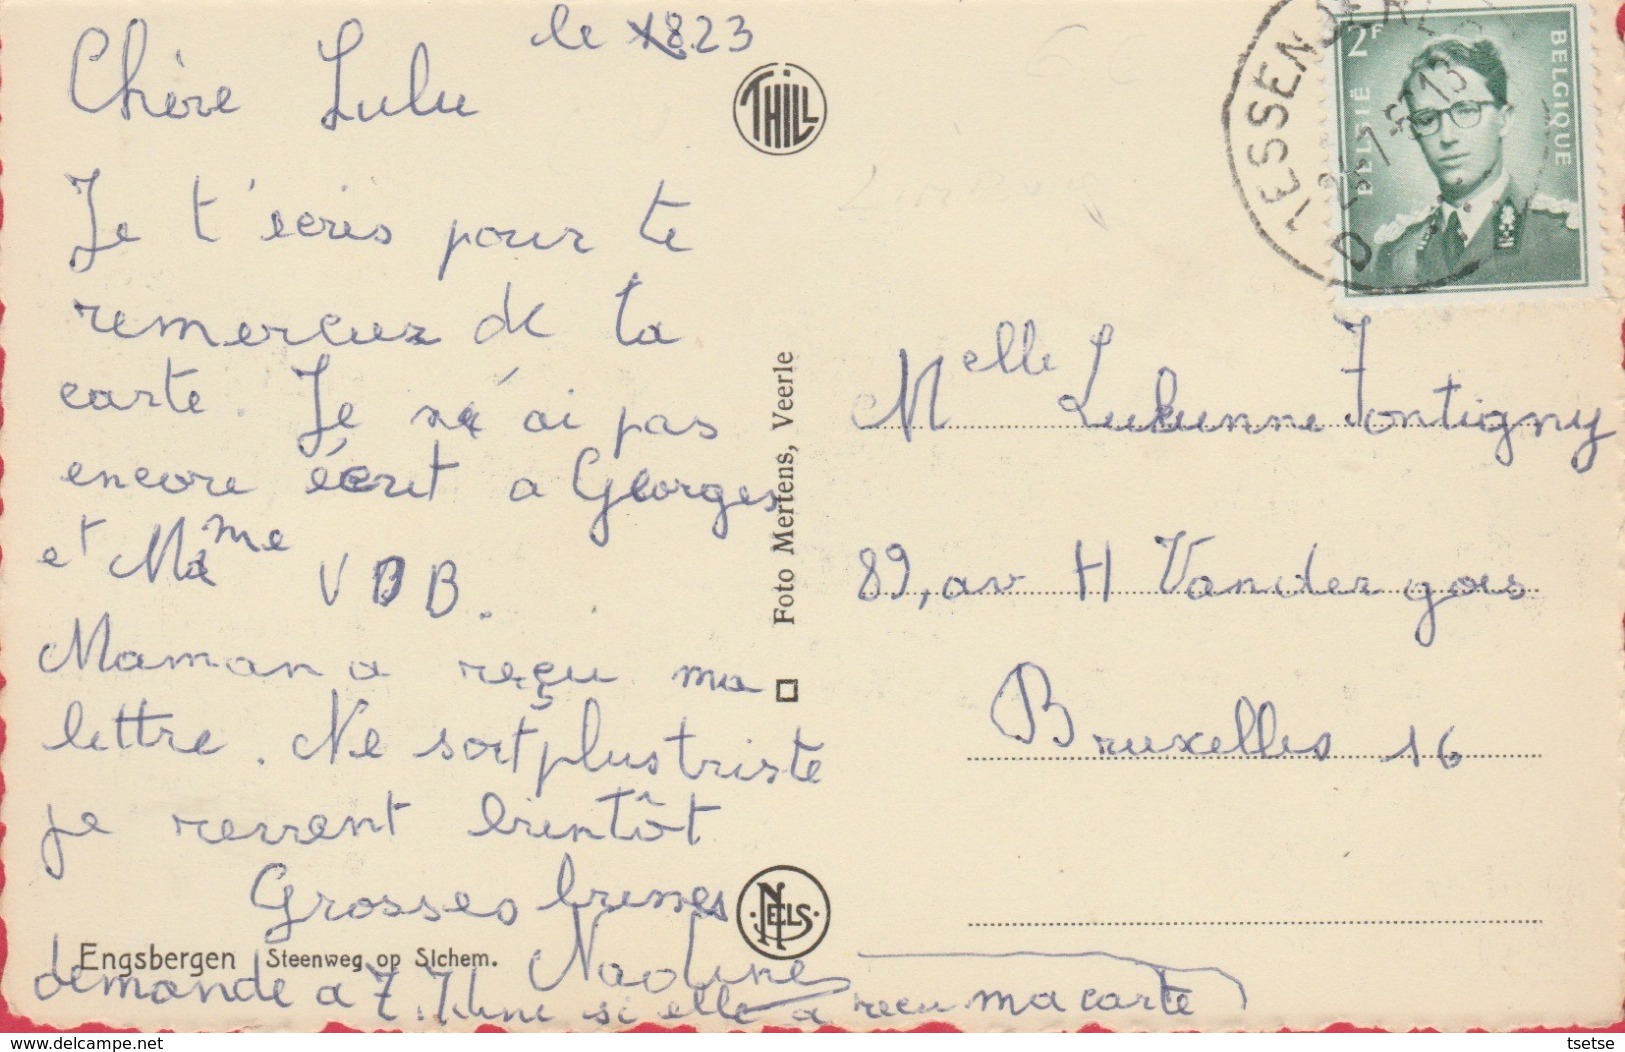 le 1823
Chère Lulu
Je t'écris pour te
remerciez de ta
carte. Je n'ai pas
encore écrit a Georges
et Mame V D B.
Maman a reçu ma
lettre. Ne soit plus triste
je revient bientôt
Grosses
Nadine
demande a si elle a reçu ma carte
Engsbergen Steenweg op Sichem.
THILL
Foto Mertens, Veerle
NELS
BELGIË 2F BELGIQUE
Melle Fontigny
89, av H Vander goes
Bruxelles 16
tsetse
delcampe.net